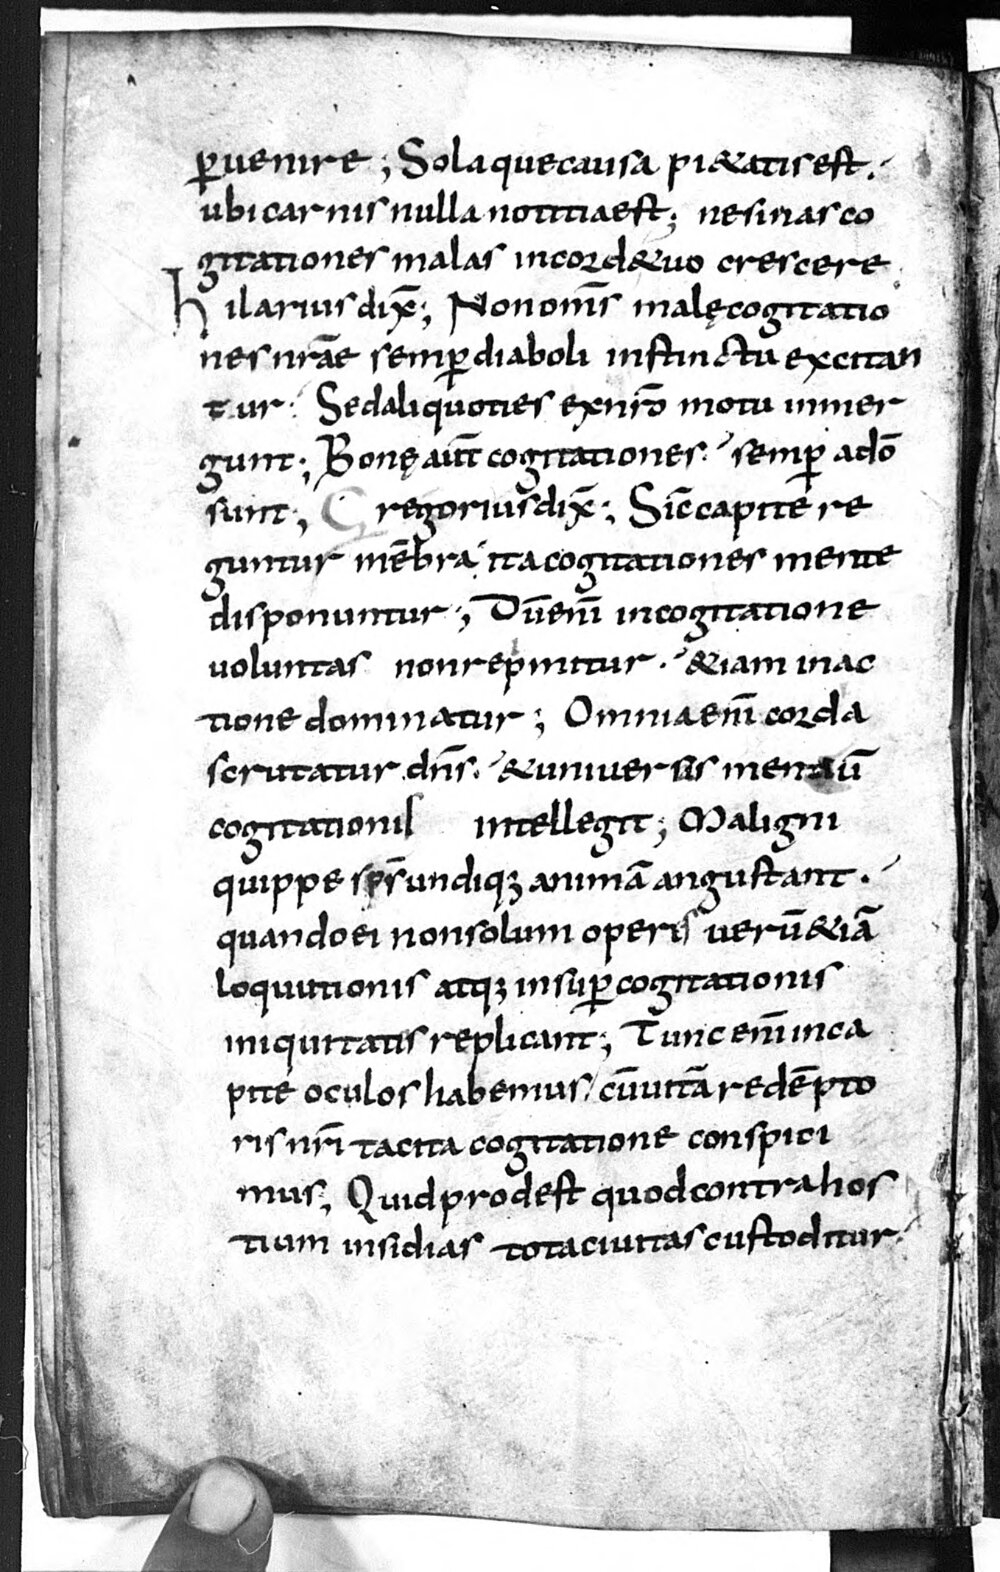 ꝑuenire ; Sola que causa pi&atis est .
ubi carnis nulla notitia est ; ne sinas co
gitationes malas in cord& uo crescere
hilarius dix̄ ; Non om̄s malę cogitatio
nes nr̄ae semꝑ diaboli instinctu excitan
tur . Sed aliquoties ex nr̄o motu inmer
gunt ; Bonę aut̄ cogitationes . semꝑ a dō
sunt ; Gregorius dix̄ ; Sic̄ capite re
guntur mēbra ita cogitationes mente
disponuntur ; Dū enī in cogitatione
uoluntas non repinitur . &iam in ac
tione dominatur ; Omnia enī corda
scrutatur dn̄s . & uniuersis mentiū
cogitationis intellegit ; Maligni
quippe sp̄s undiqꝫ animā angustant .
quando ei non solum operis uerū &iā
loquutionis atqꝫ insuꝑ cogitationis
iniquitatis replicant ; Tunc enī in ca
pite oculos habemus / cū uitā redēpto
ris nr̄i tacita cogitatione conspici
mus ; Quid prodest quod contra hos
tium insidias tota ciuitas custoditur .